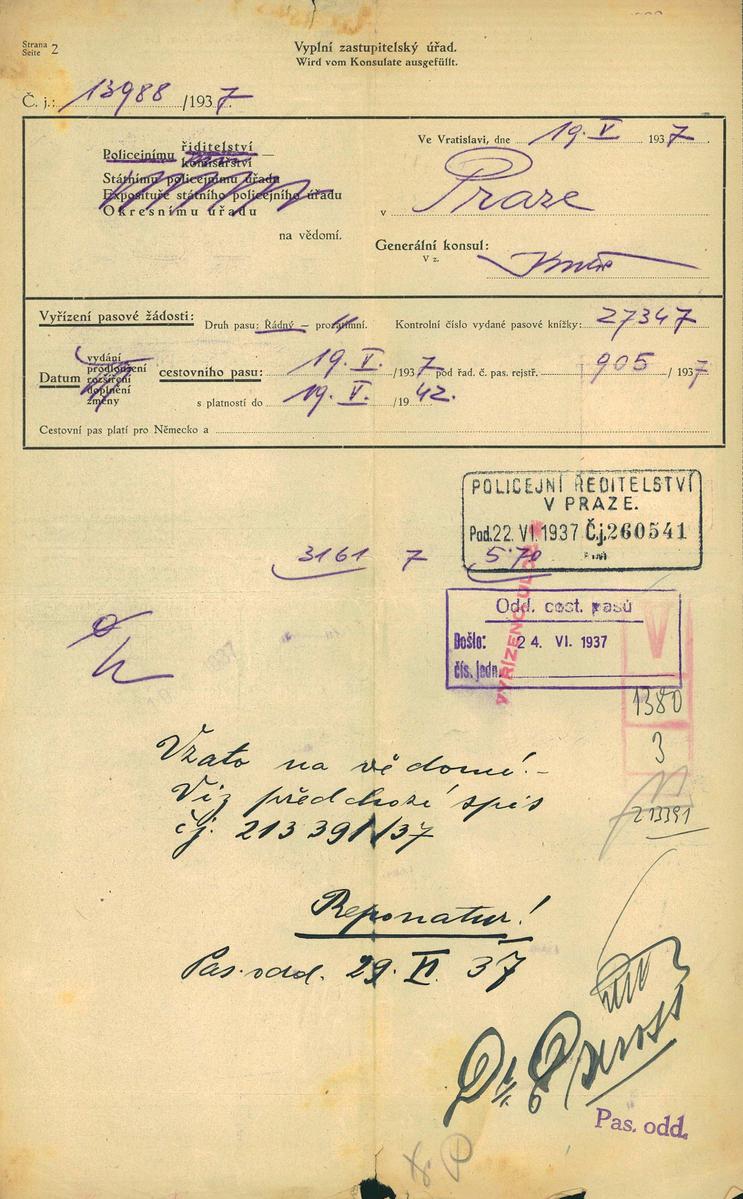 Strana
Seite 2
Vyplní zastupitelský úřad.
Wird vom Konsulate ausgefüllt.
Č. j.: 13988 /1937.
Policejnímu řiditelství —
komisařství
Státnímu policejnímu úřadu
Exposituře státního policejního úřadu
Okresnímu úřadu
na vědomí.
Ve Vratislavi, dne 19. V. 1937
v Praze
Generální konsul:
V z.
Vyřízení pasové žádosti: Druh pasu: Řádný — prozatímní. Kontrolní číslo vydané pasové knížky: 27347
Datum
vydání
prodloužení
rozšíření
doplnění
změny
cestovního pasu: 19. V. /1937 pod řad. č. pas. rejstř. 905 /1937
s platností do 19. V. /1942.
Cestovní pas platí pro Německo a
POLICEJNÍ ŘEDITELSTVÍ
V PRAZE.
Pod. 22. VI. 1937 Č.j. 260541
3161 7 570
Odd. cest. pasů
Došlo: 24. VI. 1937
čís. jedn.
VYŘÍZENO
V
1380
3
213391
Vzato na vědomí. —
Viz předchozí spis
čj. 213 391/37
Reponatur!
Pas. odd. 29. VI. 37
Pas. odd.